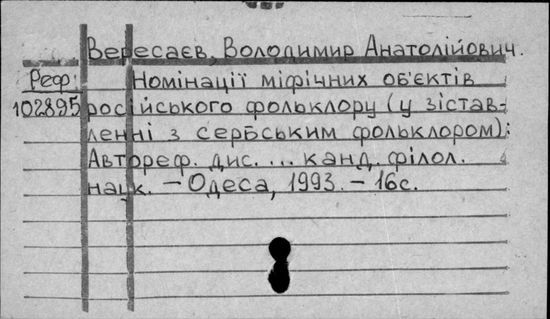 Вересаєв, Володимир Анатолійович.
Реф. Номінації міфічних об'єктів
102895 російського фольклору (у зістав-
ленні з сербським фольклором):
Автореф. дис. ... канд. філол.
наук. – Одеса, 1993. – 16с.